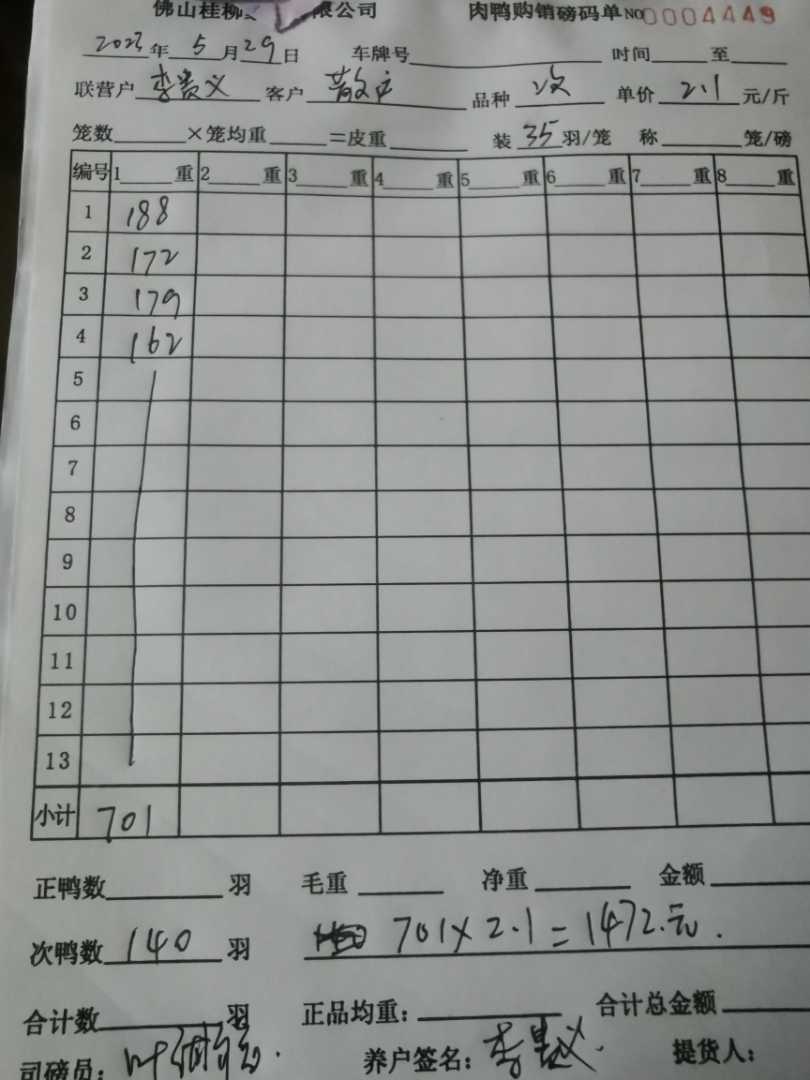 佛山桂柳 限公司 肉鸭购销磅码单 NO0004449
2023年 5月29日 车牌号 时间 至
联营户 李贵义 客户 散户 品种 次 单价 2.1 元/斤
笼数 ×笼均重 =皮重 装 35 羽/笼 称 笼/磅
编号 1 重 2 重 3 重 4 重 5 重 6 重 7 重 8 重
1 188
2 172
3 179
4 162
5
6
7
8
9
10
11
12
13
小计 701
正鸭数 羽 毛重 净重 金额
次鸭数 140 羽 701×2.1=1472.元.
合计数 羽 正品均重: 合计总金额
司磅员: 养户签名: 李贵义. 提货人: